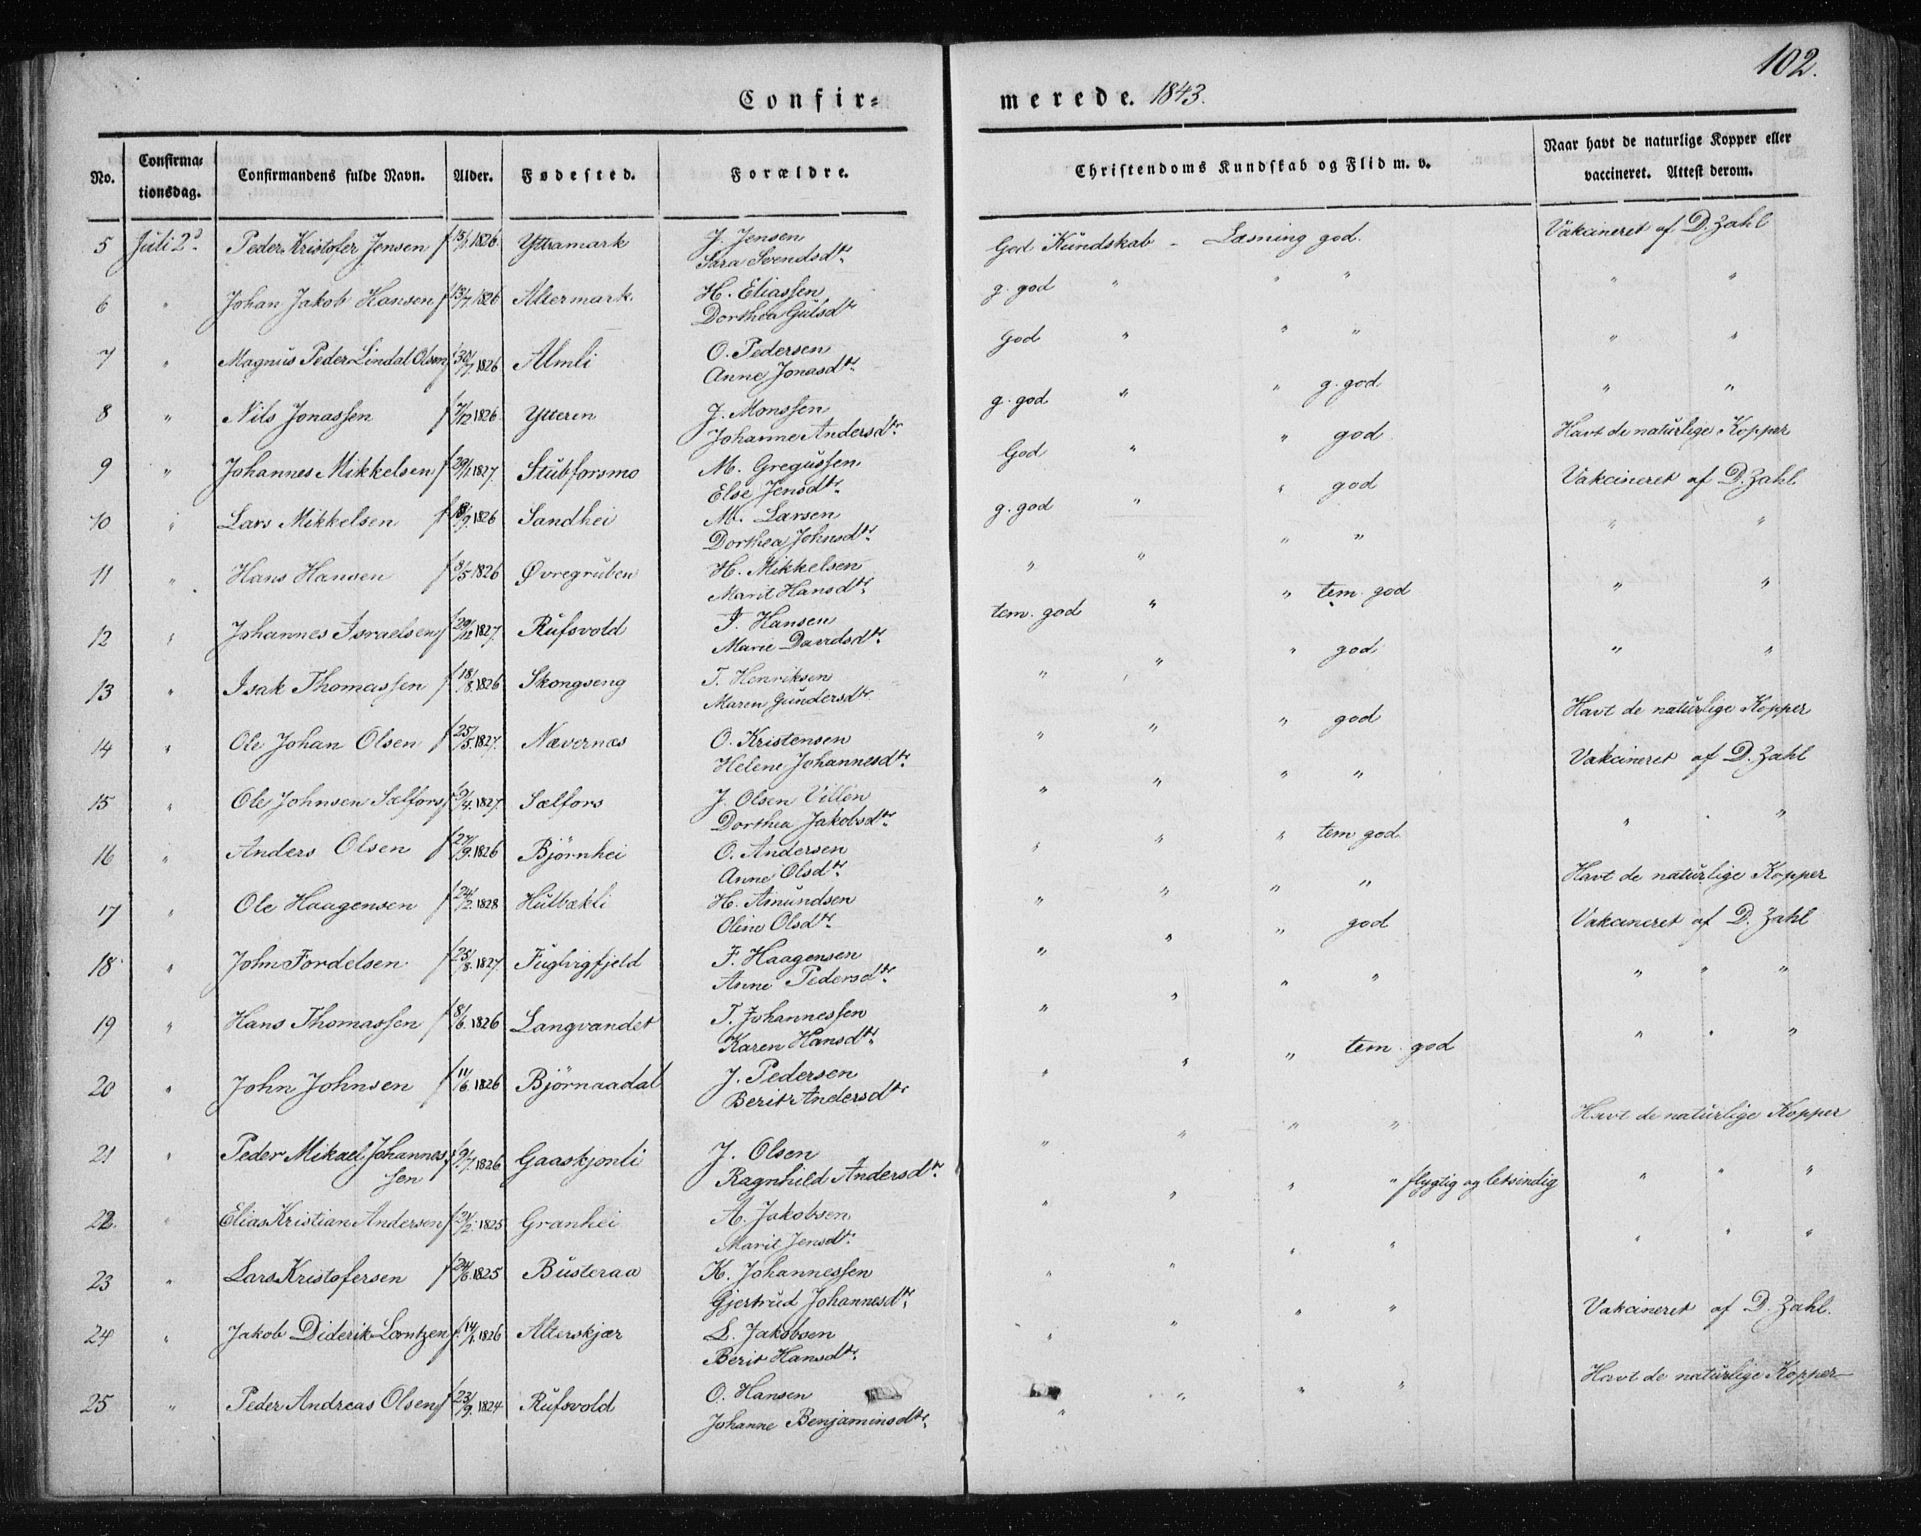 102.
Confir=
merede. 1843.
No. Confirma=tionsdag. Confirmandens fulde Navn. Alder. Fødested. Forældre. Christendoms Kundskab og Flid m. v. Naar havt de naturlige Kopper eller vaccineret. Attest derom.
5 Juli 2d Peder Kristofer Jensen f 1826 Yttramark J. Jensen Sara Svendsdtr. God Kundskab - Læsning god. Vakcineret af D. Zahl
6 " Johan Jakob Hansen f 13/7 1826 Altermark. H. Eliassen Dorthea Gulsdtr g. god " " " " "
7 " Magnus Peder Lindal Olsen f 30/7 1826 Almli O. Pedersen Anne Jonasdtr. God " " " " "
8 " Nils Jonassen f 7/12 1826 Ytteren J. Monssen Johanne Andersdtr. g. god " " g. god " "
9 " Johannes Mikkelsen f 29/1 1827. Stubforsmo M. Gregussen Else Jensdtr. God " " god Havt de naturlige Kopper
10 " Lars Mikkelsen f 18/9 1826 Sandhei M. Larsen Dorthea Johnsdtr. g. god " " god Vakcineret af D. Zahl.
11 " Hans Hansen f 3/5 1826 Øvregruben H. Mikkelsen Marit Hansdtr. " " " " " "
12 " Johannes Israelsen f 29/12 1827. Rufsvold I. Hansen Marie Davidsdtr. tem. god " " tem. god " "
13 " Isak Thomassen f 18/8 1826 Skongseng T. Henriksen Maren Gundersdtr " " " god " "
14 " Ole Johan Olsen f 25/5 1827. Nævernæs O. Kristensen Helene Johannesdtr. " " " god Havt de naturlige Kopper
15 " Ole Johnsen Sælfors f 9/4 1827. Sælfors J. Olsen Villen Dorthea Jakobsdtr " " " " Vakcineret af D. Zahl
16 " Anders Olsen f 27/9 1826 Bjørnhei O. Andersen Anne Olsdtr. " " " tem god. " "
17 " Ole Haagensen f 24/2 1828 Hutbækli H. Amundsen Oline Olsdtr. " " " " Havt de naturlige Kopper
18 " John Fordelsen f 25/8 1827 Fuglvigfjeld F. Haagensen Anne Pedersdtr. " " " god Vakcineret af D. Zahl
19 " Hans Thomassen f 8/6 1826 Langvandet T. Johannessen Karen Hansdtr. " " " " " " "
20 " John Johnsen f 11/6 1826 Bjørnaadal J. Pedersen Berit Andersdtr " " " tem. god " " "
21 " Peder Mikael Johannessen f 9/7 1826 Gaaskjonli J. Olsen Ragnhild Andersdtr. " " " " Havt de naturlige Kopper
22. " Elias Kristian Andersen f 21/2 1825 Granhei A. Jakobsen Marit Jensdtr. " " " " flygtig og letsindig " " "
23 " Lars Kristofersen f 24/6 1825 Busteraa K. Johannessen Gjertrud Johannesdtr. " " " " " " "
24 " Jakob Diderik Lorntzen f. 14/1 1826 Alterskjær L. Jakobsen Berit Hansdtr. " " " " Vakcineret af D. Zahl.
25 " Peder Andreas Olsen f 23/9 1824 Rufsvold O. Hansen Johanne Benjaminsdtr. " " " " Havt de naturlige Kopper